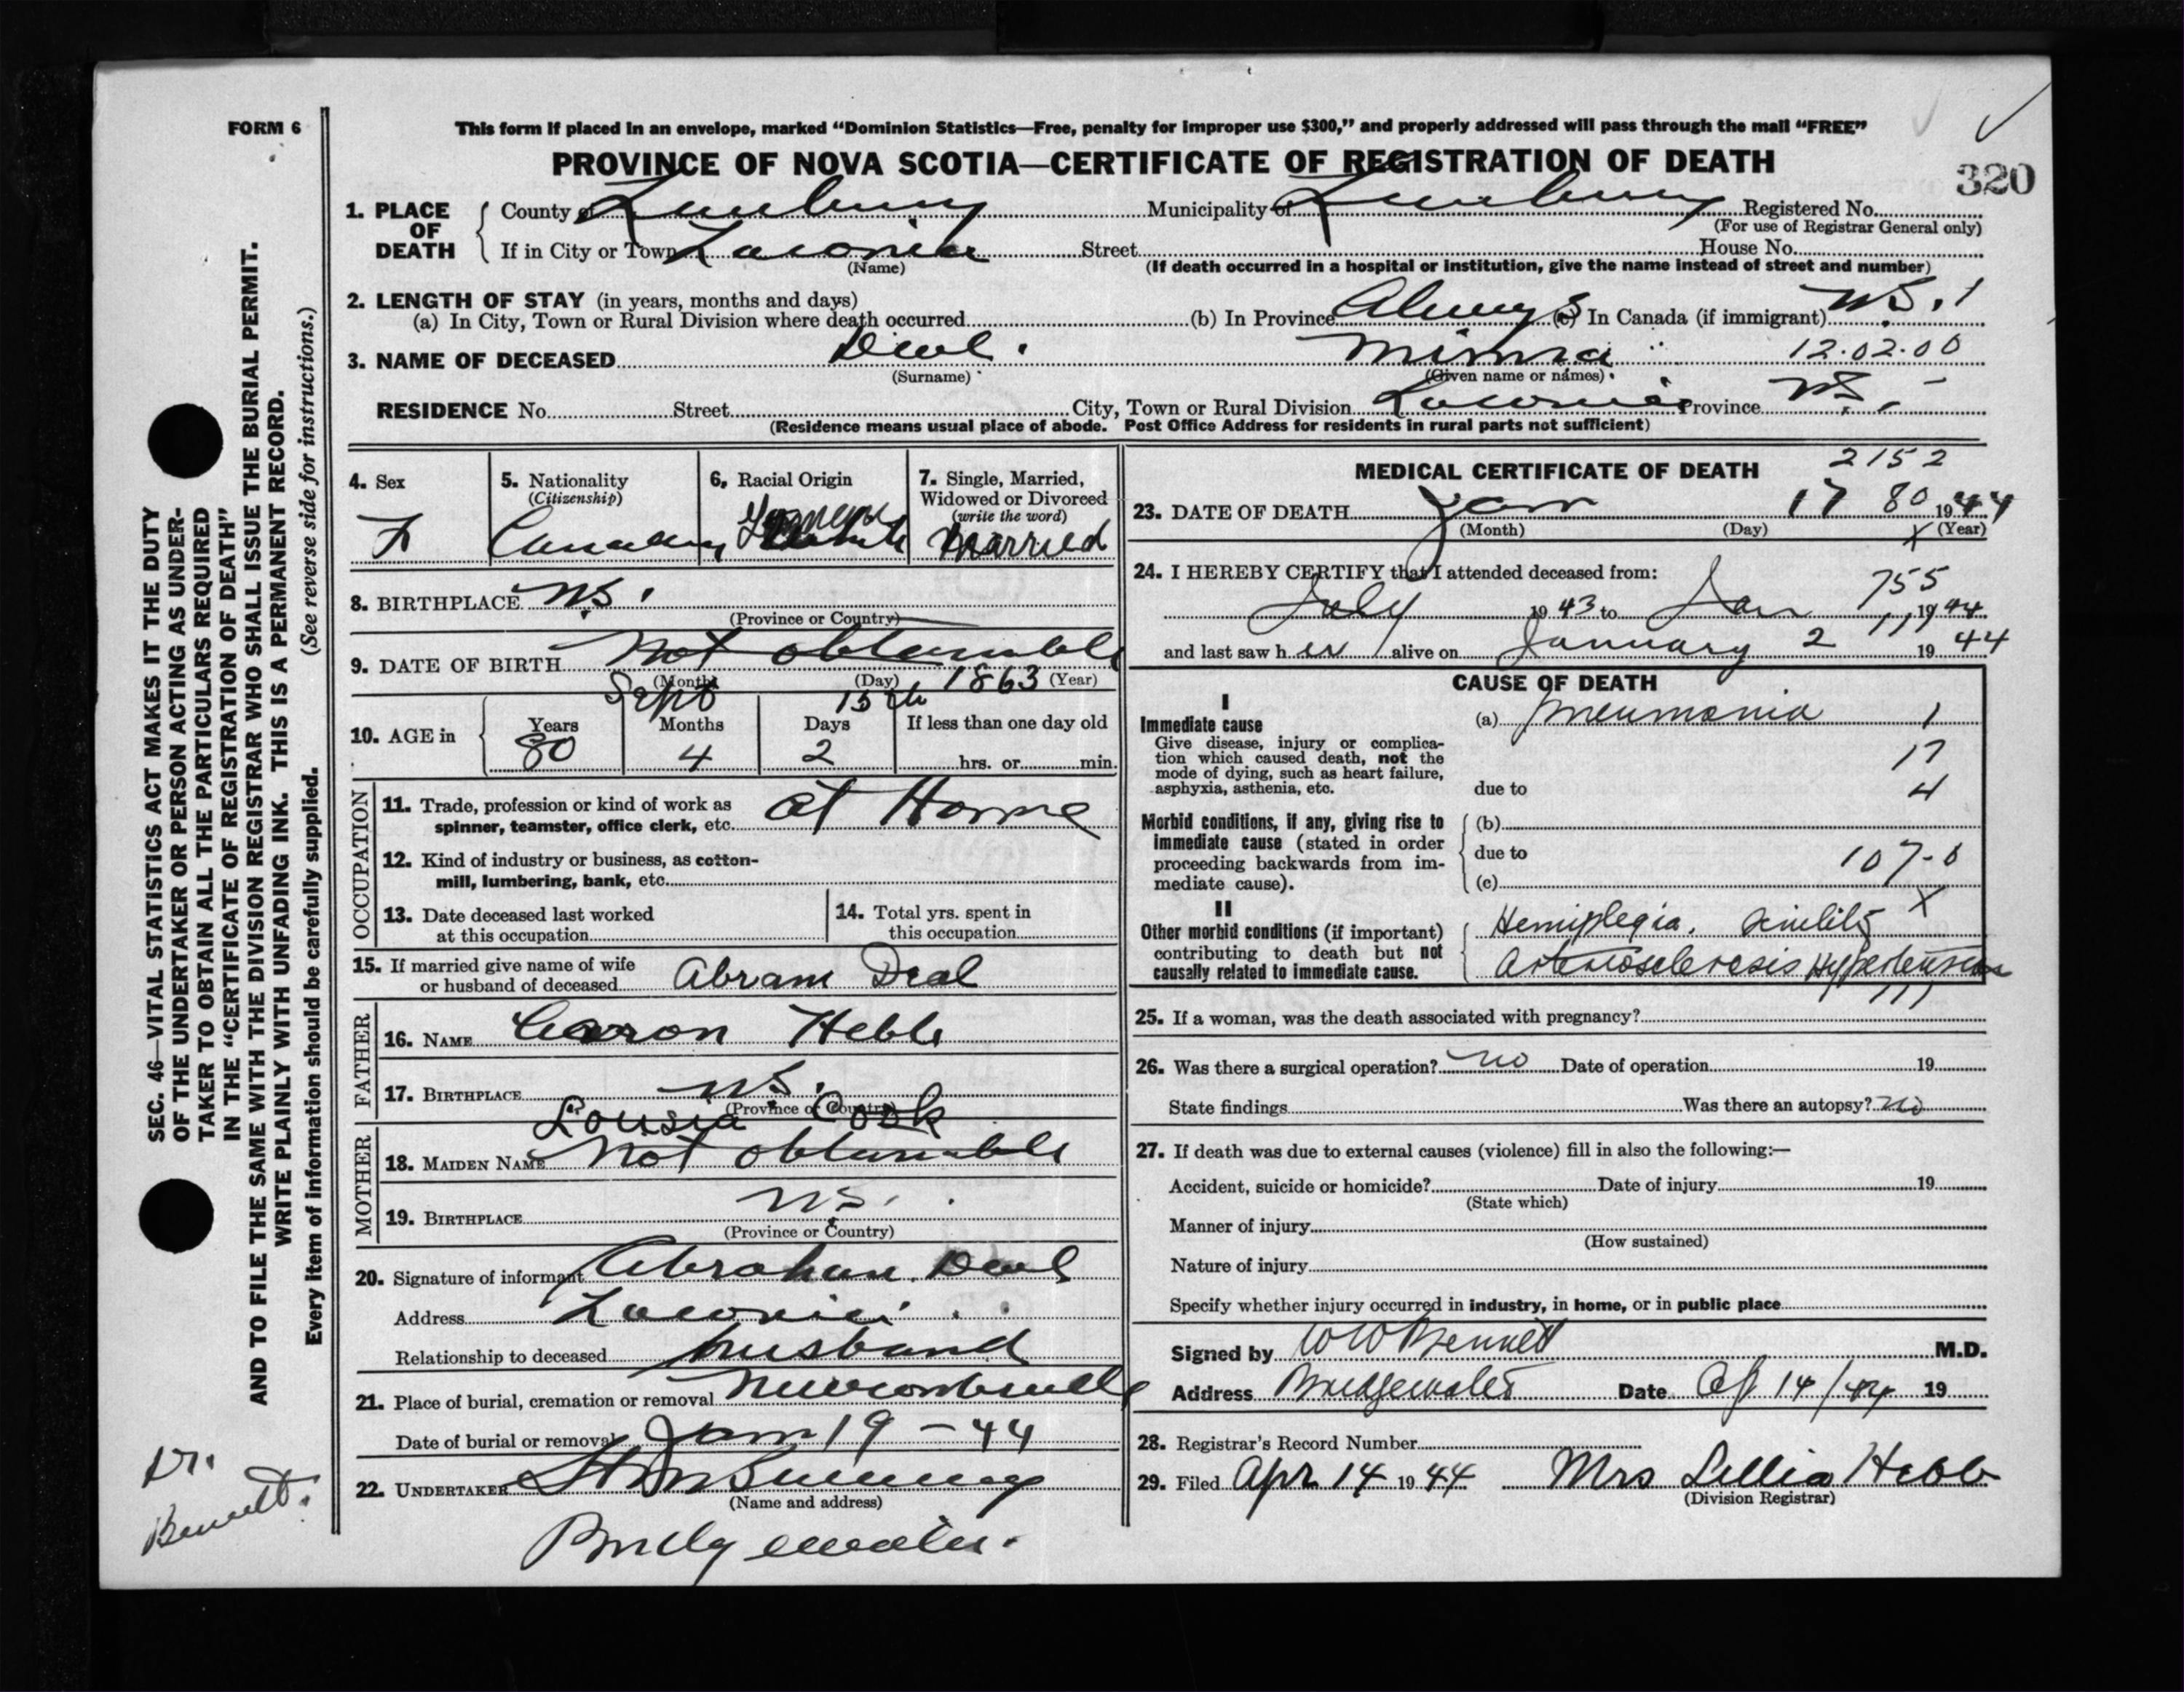 FORM 6
This form if placed in an envelope, marked "Dominion Statistics—Free, penalty for improper use $300," and properly addressed will pass through the mail "FREE"
PROVINCE OF NOVA SCOTIA—CERTIFICATE OF REGISTRATION OF DEATH
320
1. PLACE OF DEATH
County of Lunenburg Municipality of Lunenburg Registered No.
(For use of Registrar General only)
If in City or Town Laconia Street House No.
(Name)
(If death occurred in a hospital or institution, give the name instead of street and number)
2. LENGTH OF STAY (in years, months and days)
(a) In City, Town or Rural Division where death occurred (b) In Province Always (c) In Canada (if immigrant) N.S. 1
3. NAME OF DECEASED Deal. Minna 12.02.00
(Surname) (Given name or names)
RESIDENCE No. Street City, Town or Rural Division Laconia Province N.S. -
(Residence means usual place of abode. Post Office Address for residents in rural parts not sufficient)
4. Sex
F
5. Nationality
(Citizenship)
Canadian
6. Racial Origin
German
7. Single, Married,
Widowed or Divorced
(write the word)
Married
8. BIRTHPLACE N.S.
(Province or Country)
9. DATE OF BIRTH Not obtainable
(Month) (Day) 1863 (Year)
Sept 15th
10. AGE in
Years Months Days If less than one day old
80 4 2 hrs. or min.
OCCUPATION
11. Trade, profession or kind of work as
spinner, teamster, office clerk, etc. at Home
12. Kind of industry or business, as cotton-
mill, lumbering, bank, etc.
13. Date deceased last worked
at this occupation
14. Total yrs. spent in
this occupation
15. If married give name of wife
or husband of deceased Abram Deal
FATHER
16. NAME Aaron Hebb
17. BIRTHPLACE N.S.
(Province or Country)
MOTHER
Lousia Cook
18. MAIDEN NAME Not obtainable
19. BIRTHPLACE N.S.
(Province or Country)
20. Signature of informant Abraham Deal
Address Laconia
Relationship to deceased husband
21. Place of burial, cremation or removal Newcombville
Date of burial or removal Jan 19 - 44
22. UNDERTAKER
(Name and address)
Bridgewater.
MEDICAL CERTIFICATE OF DEATH
2152
23. DATE OF DEATH Jan 17 80 1944
(Month) (Day) X (Year)
24. I HEREBY CERTIFY that I attended deceased from:
755
July 1943 to Jan 1944
and last saw her alive on January 2 1944
CAUSE OF DEATH
I
Immediate cause
Give disease, injury or complica-
tion which caused death, not the
mode of dying, such as heart failure,
asphyxia, asthenia, etc.
(a) Pneumonia 1
17
due to 4
Morbid conditions, if any, giving rise to
immediate cause (stated in order
proceeding backwards from im-
mediate cause).
(b)
due to 107-0
(c)
II
Other morbid conditions (if important)
contributing to death but not
causally related to immediate cause.
Hemiplegia. Senility X
Arteriosclerosis Hypertension
25. If a woman, was the death associated with pregnancy?
26. Was there a surgical operation? no Date of operation 19
State findings Was there an autopsy? no
27. If death was due to external causes (violence) fill in also the following:—
Accident, suicide or homicide? Date of injury 19
(State which)
Manner of injury
(How sustained)
Nature of injury
Specify whether injury occurred in industry, in home, or in public place
Signed by W W Bennett M.D.
Address Bridgewater Date Ap 14/44 19
28. Registrar's Record Number
29. Filed Apr 14 1944 Mrs Lillia Hebb
(Division Registrar)
SEC. 46—VITAL STATISTICS ACT MAKES IT THE DUTY
OF THE UNDERTAKER OR PERSON ACTING AS UNDER-
TAKER TO OBTAIN ALL THE PARTICULARS REQUIRED
IN THE "CERTIFICATE OF REGISTRATION OF DEATH"
AND TO FILE THE SAME WITH THE DIVISION REGISTRAR WHO SHALL ISSUE THE BURIAL PERMIT.
WRITE PLAINLY WITH UNFADING INK. THIS IS A PERMANENT RECORD.
Every item of information should be carefully supplied. (See reverse side for instructions.)
Dr.
Bennett.